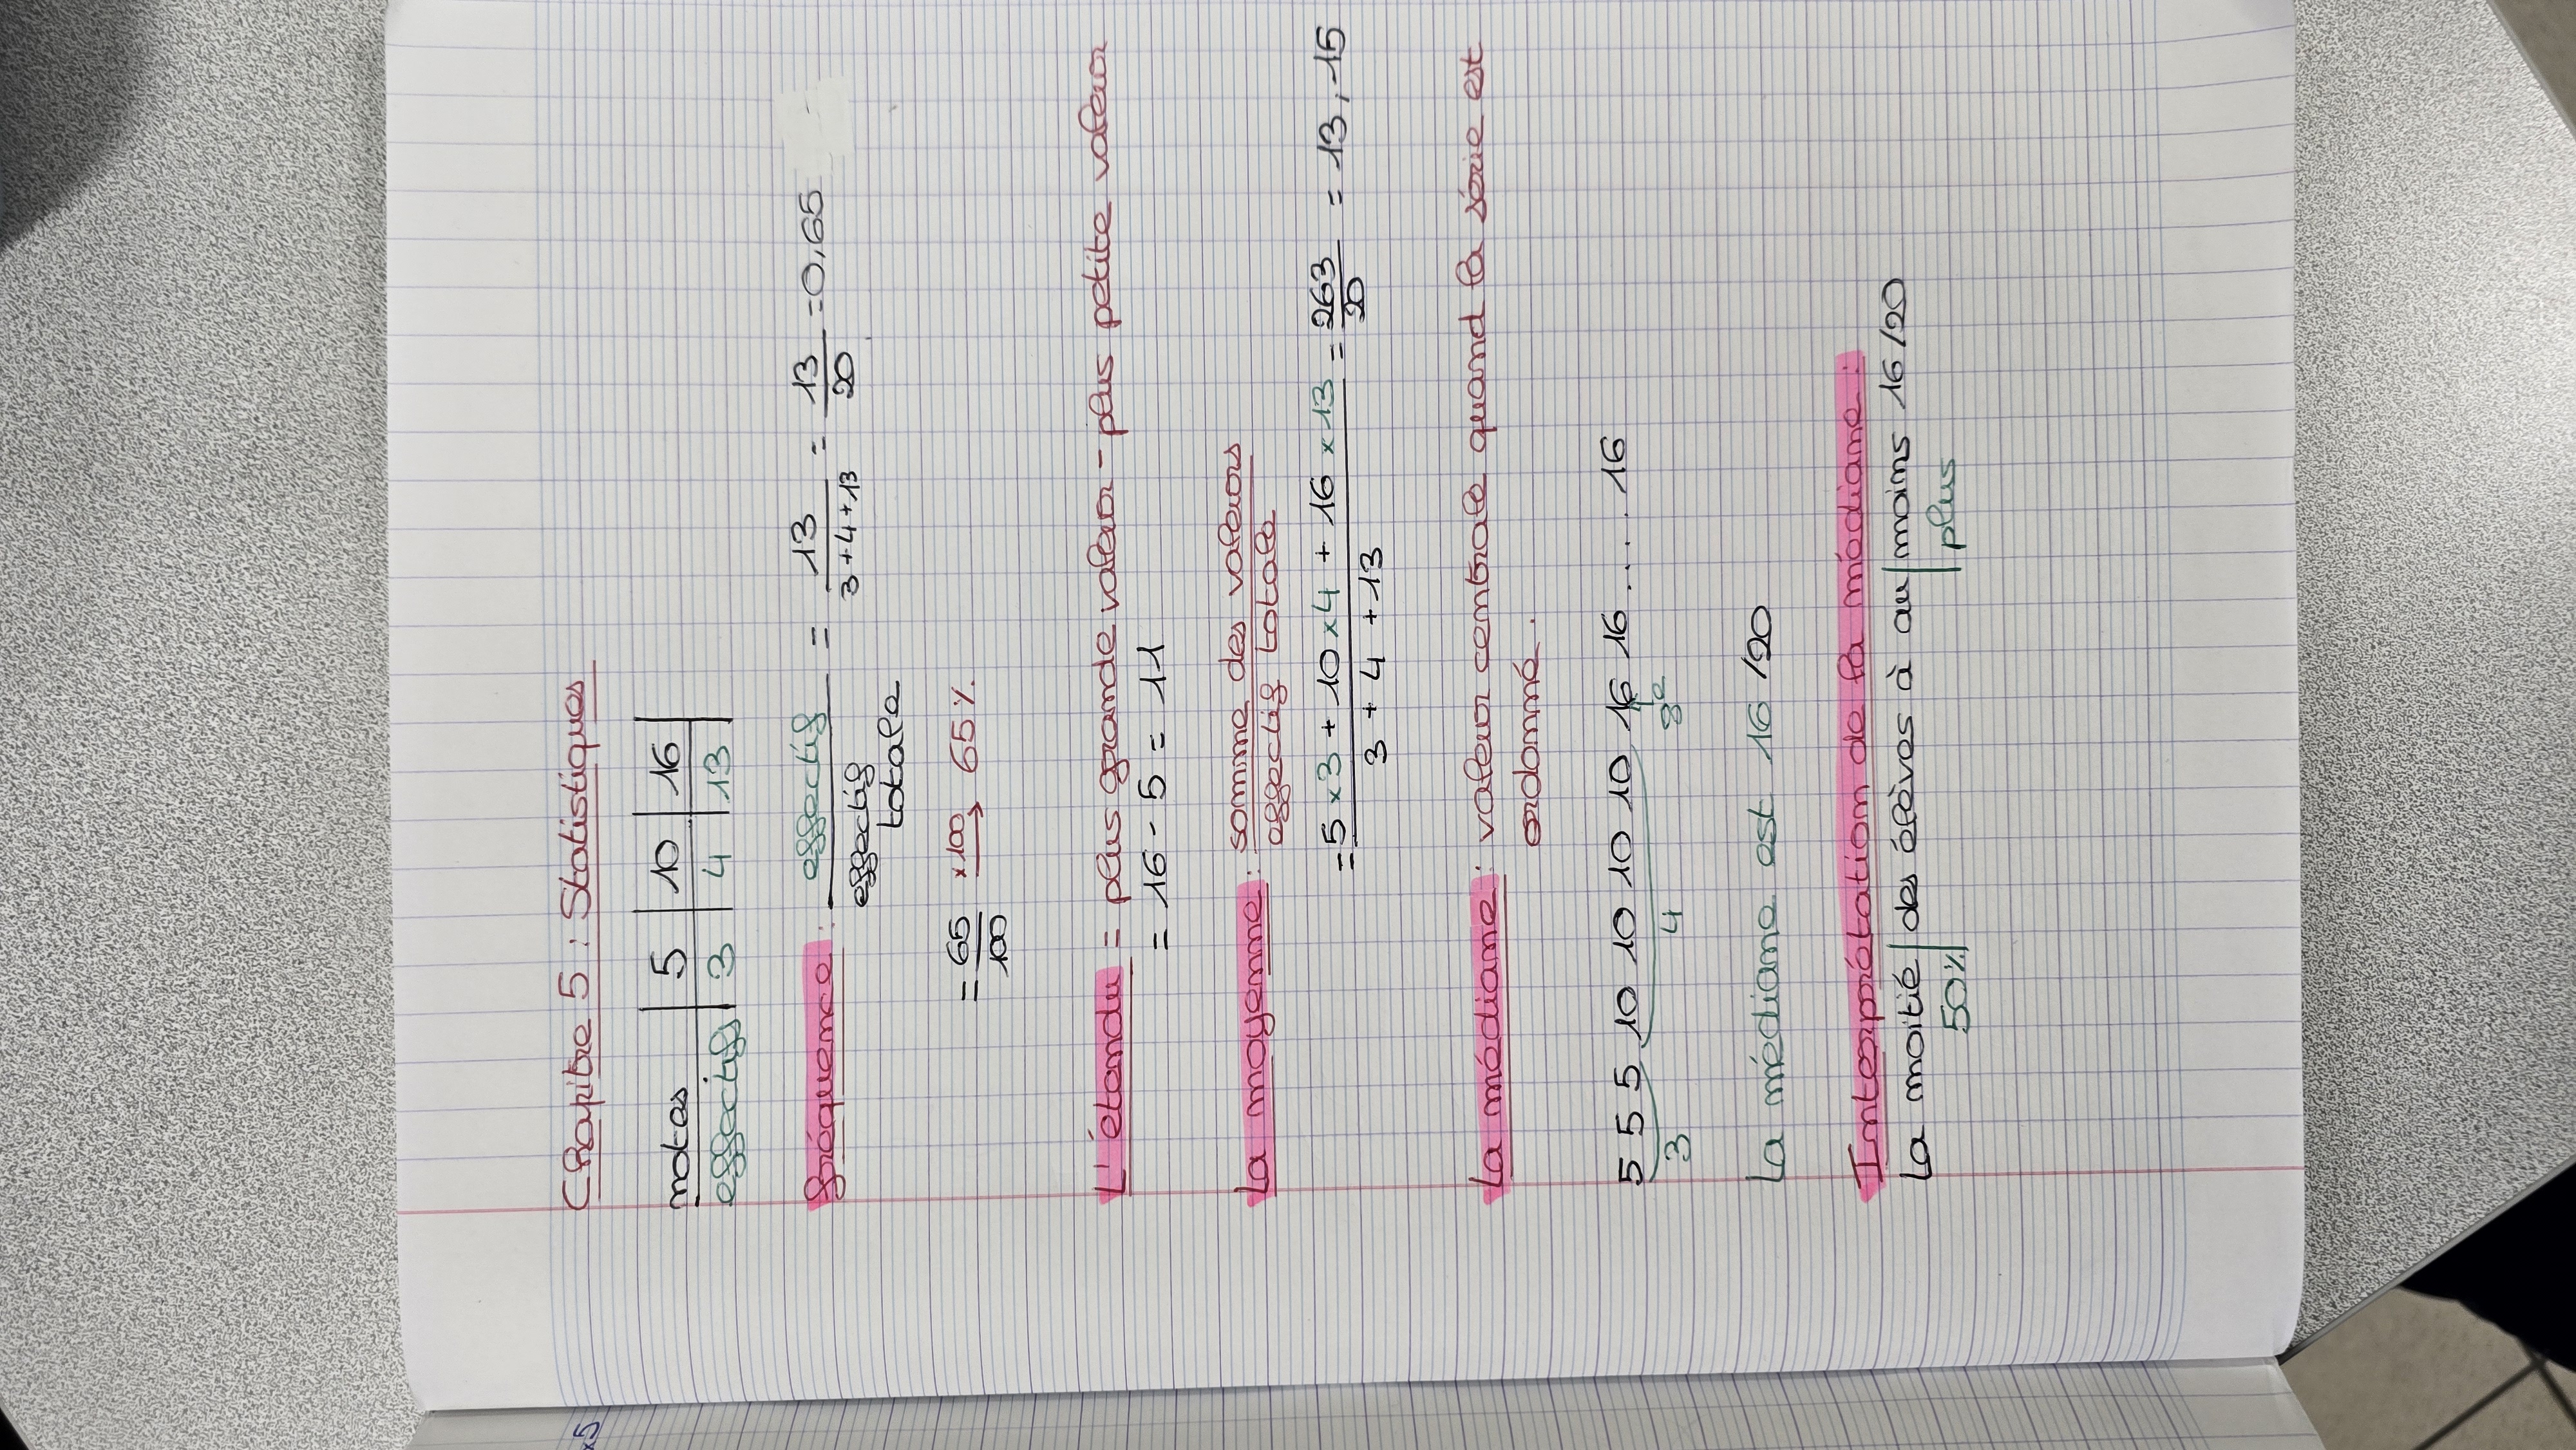 Chapitre 5 : Statistiques
notes | 5 | 10 | 16 |
effectifs | 3 | 4 | 13
fréquence : effectif / effectif totale = 13 / 3+4+13 = 13/20 = 0,65
= 65/100 ×100 → 65%
L'étendu = plus grande valeur - plus petite valeur
= 16 - 5 = 11
La moyenne : somme des valeurs / effectif totale
= 5×3 + 10×4 + 16×13 / 3 + 4 + 13 = 263/20 = 13,15
La médiane : valeur centrale quand la série est
ordonné.
5 5 5 10 10 10 10 16 16 .... 16
3 4 8e
La médiane est 16 /20
Interprétation de la médiane :
La moitié des élèves à au moins 16 /20
50% plus
×5